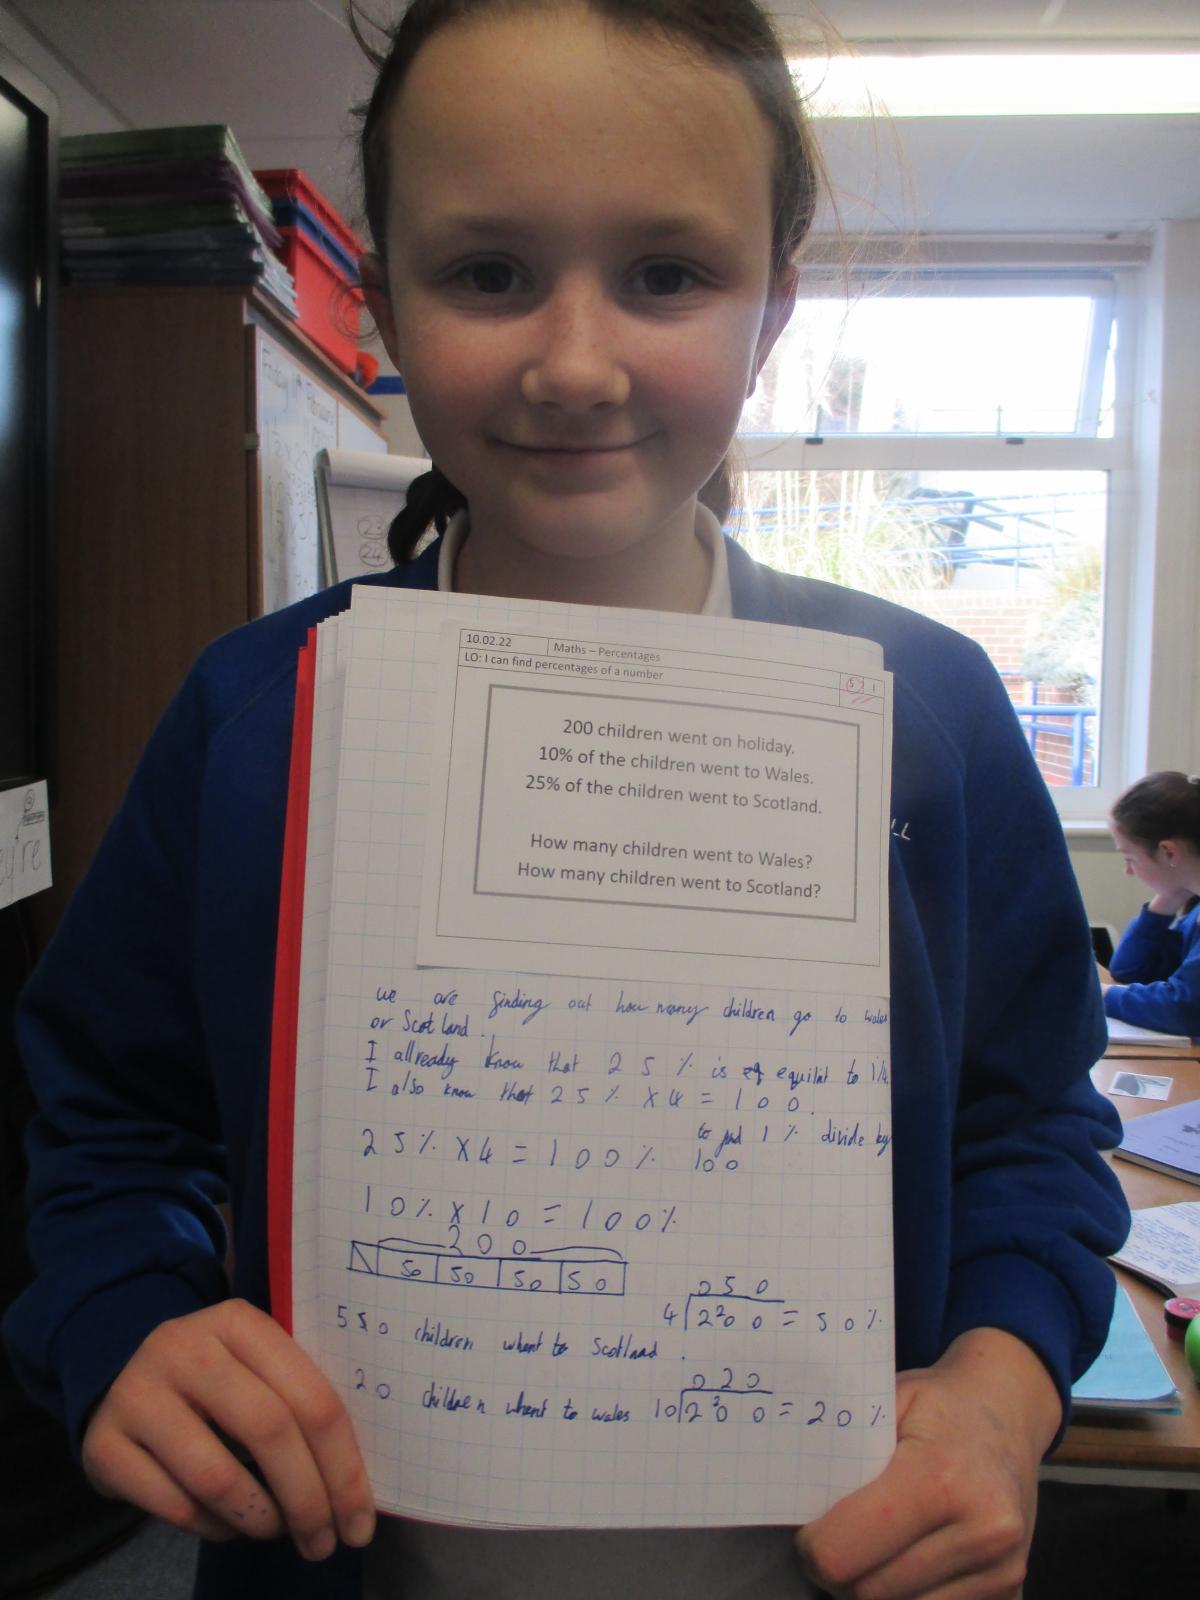 10.02.22 Maths – Percentages
LO: I can find percentages of a number
5 1
200 children went on holiday.
10% of the children went to Wales.
25% of the children went to Scotland.
How many children went to Wales?
How many children went to Scotland?
we are finding out how many children go to wales
or Scotland.
I allready know that 25% is eq equilnt to 1/4.
I also know that 25% x4 = 100.
25% x4 = 100%
to find 1% divide by
100
10% x 10 = 100%
200
50 50 50 50
050
4 2200 = 50%
550 children whent to Scotland.
020
20 children whent to wales 10 2200 = 20%
Friday
23
24
LL